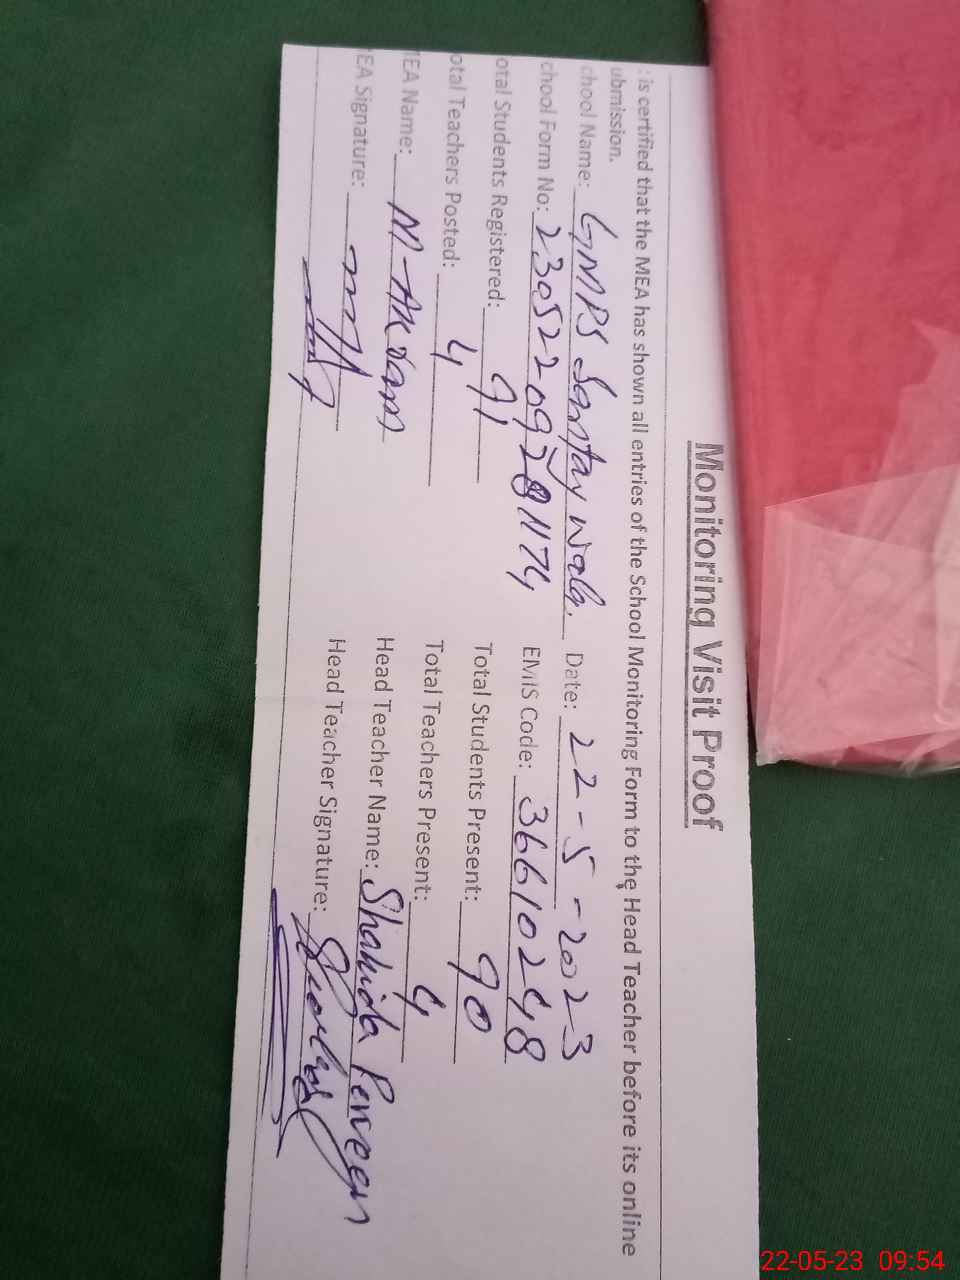 Monitoring Visit Proof
: is certified that the MEA has shown all entries of the School Monitoring Form to the Head Teacher before its online
ubmission.
chool Name: GMPS Santay wala. Date: 22-5-2023
chool Form No: EMIS Code: 36610248
otal Students Registered: 91 Total Students Present: 90
otal Teachers Posted: 4 Total Teachers Present: 4
EA Name: M-Akram Head Teacher Name: Shahida Perveen
EA Signature: Head Teacher Signature:
22-05-23 09:54